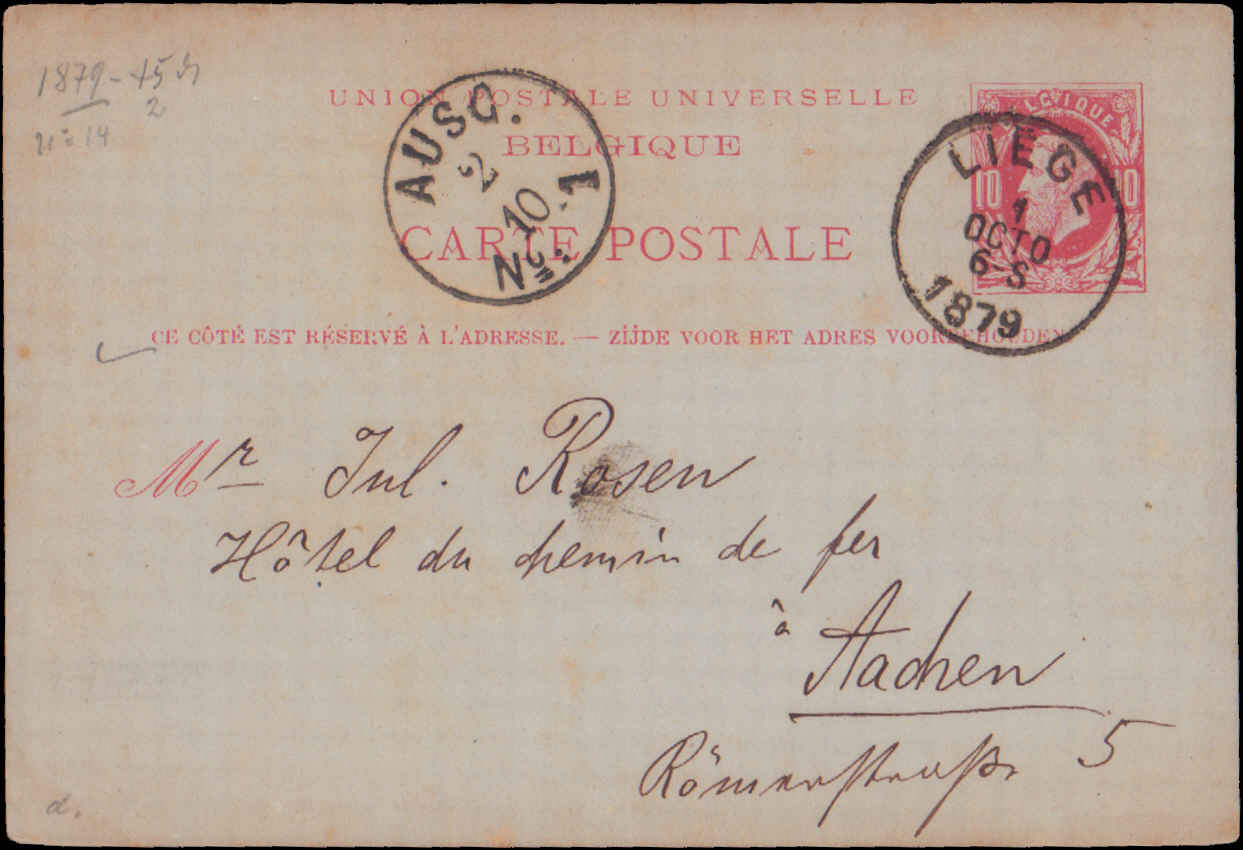 1879 - 15
2
n° 14
UNION POSTALE UNIVERSELLE
BELGIQUE
CARTE POSTALE
BELGIQUE
10 10
AUSG.
2
10
No. 1
LIÉGE
1
OCTO
6-S
1879
CE CÔTÉ EST RÉSERVÉ À L'ADRESSE. — ZIJDE VOOR HET ADRES VOORBEHOUDEN
Mr Jul. Rosen
Hôtel du chemin de fer
à Aachen
Römerstraße 5
d.